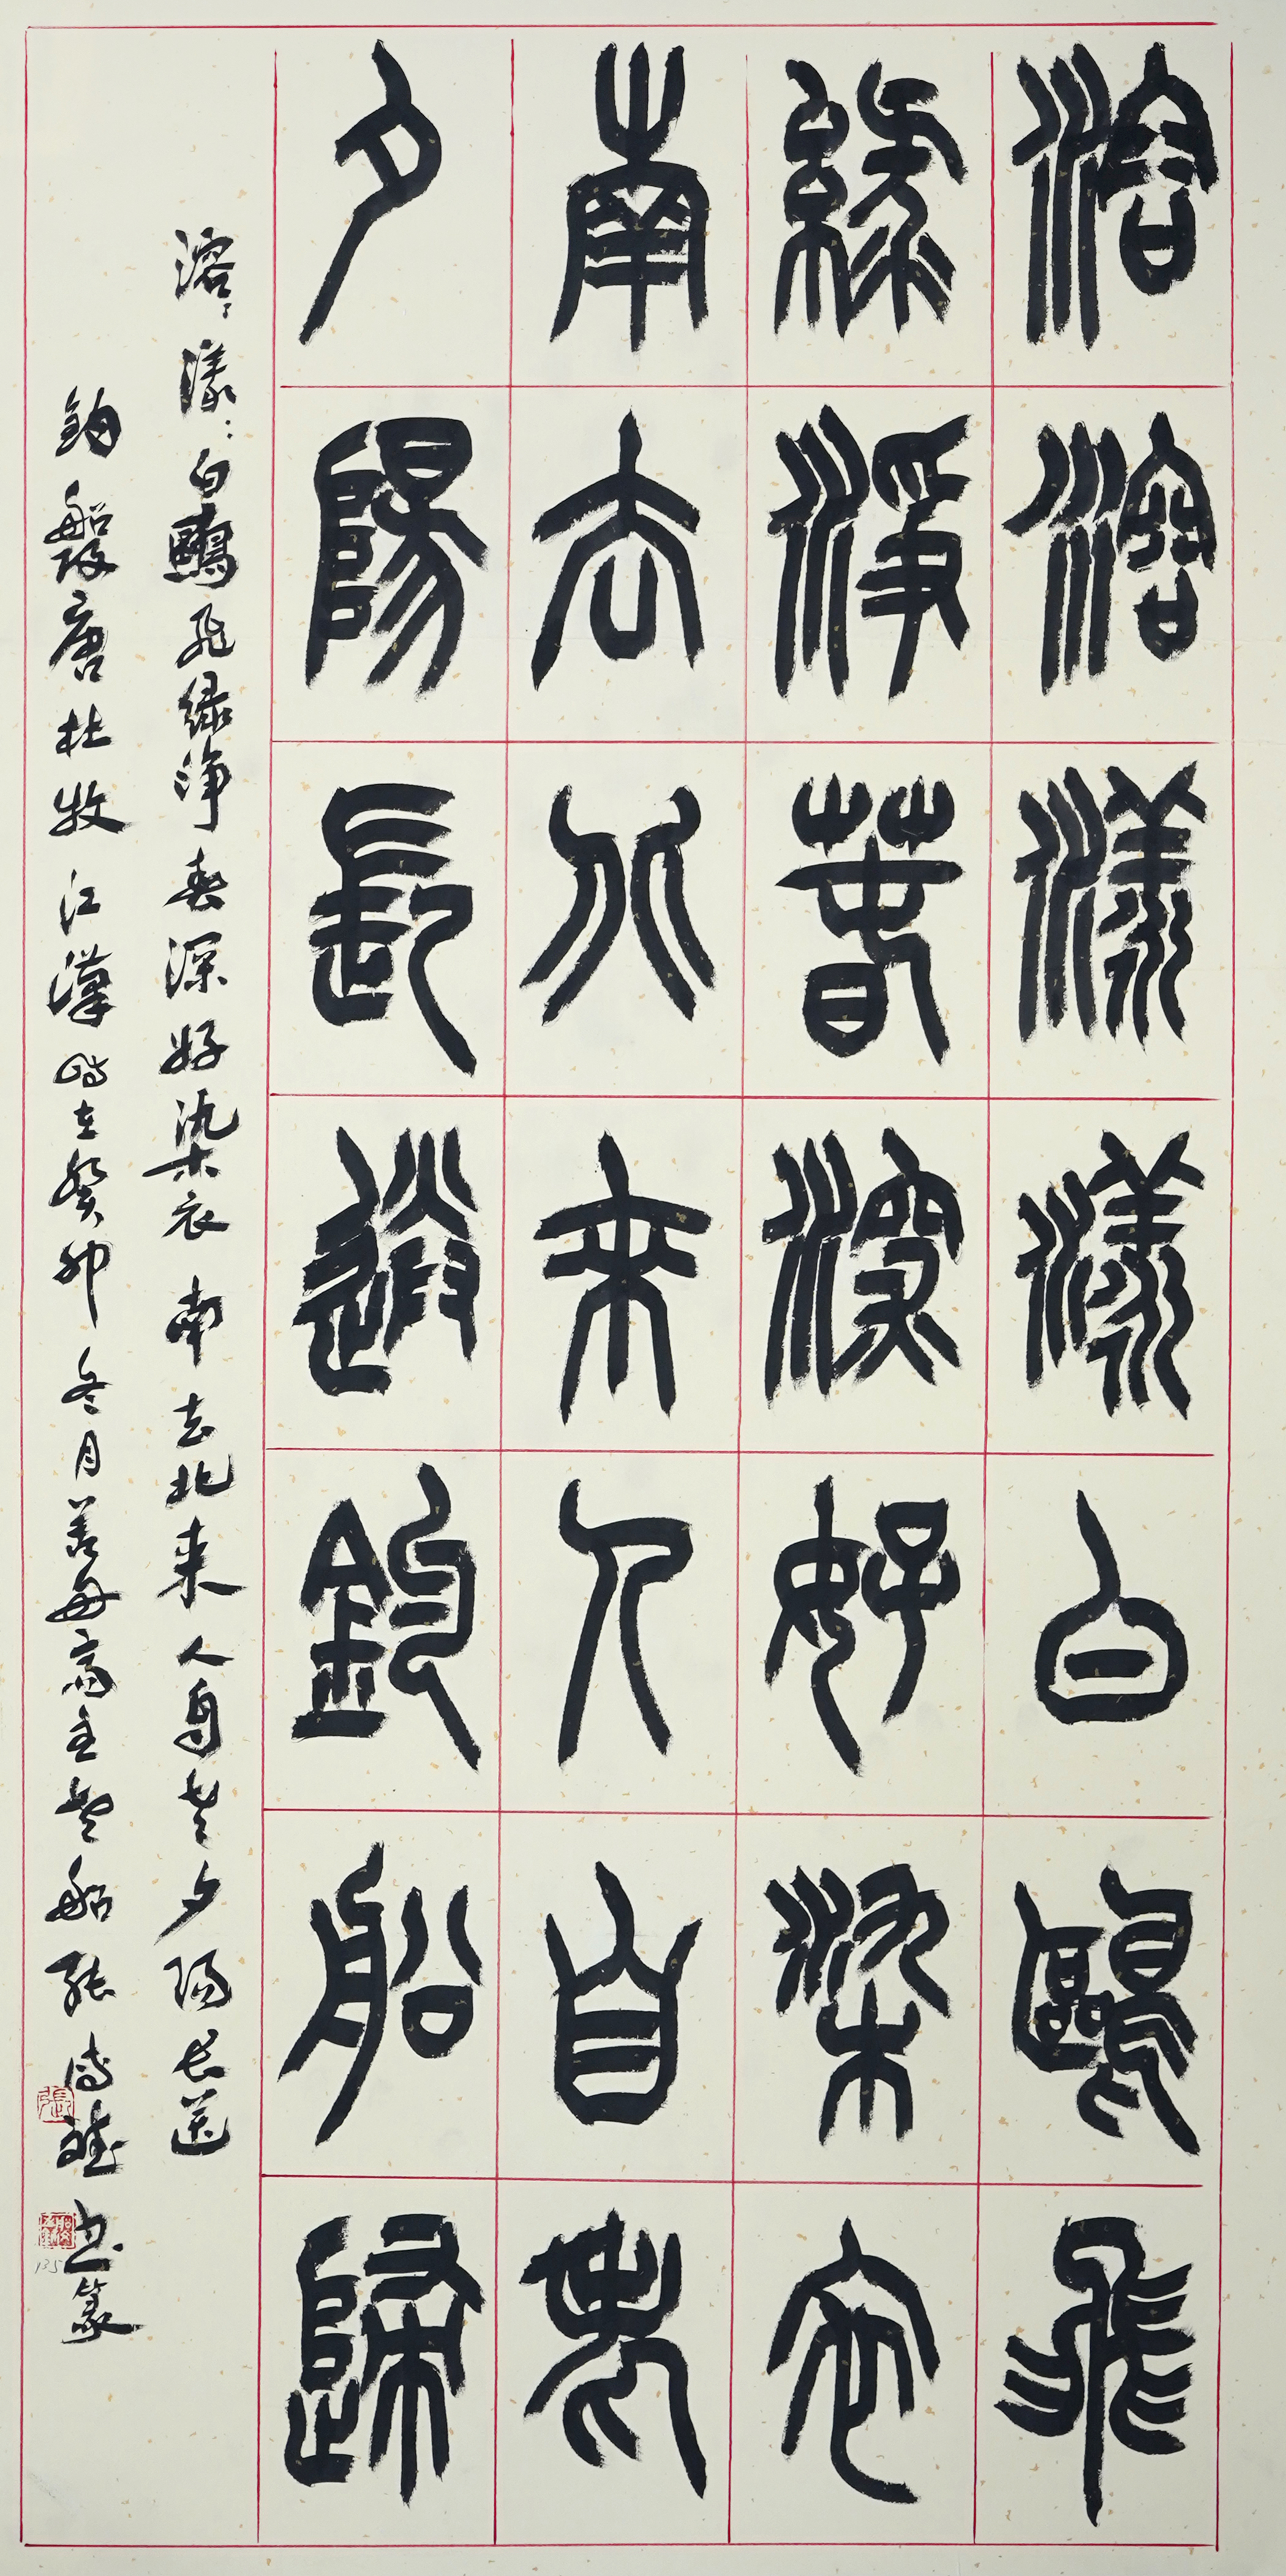 溶溶漾漾白鷗飛
綠淨春深好染衣
南去北來人自老
夕陽長送釣船歸
溶溶漾漾白鷗飛绿淨春深好染衣南去北来人自老夕陽长送
釣船歸唐杜牧江漢時在癸卯冬月善安齋主 船張 書篆
張